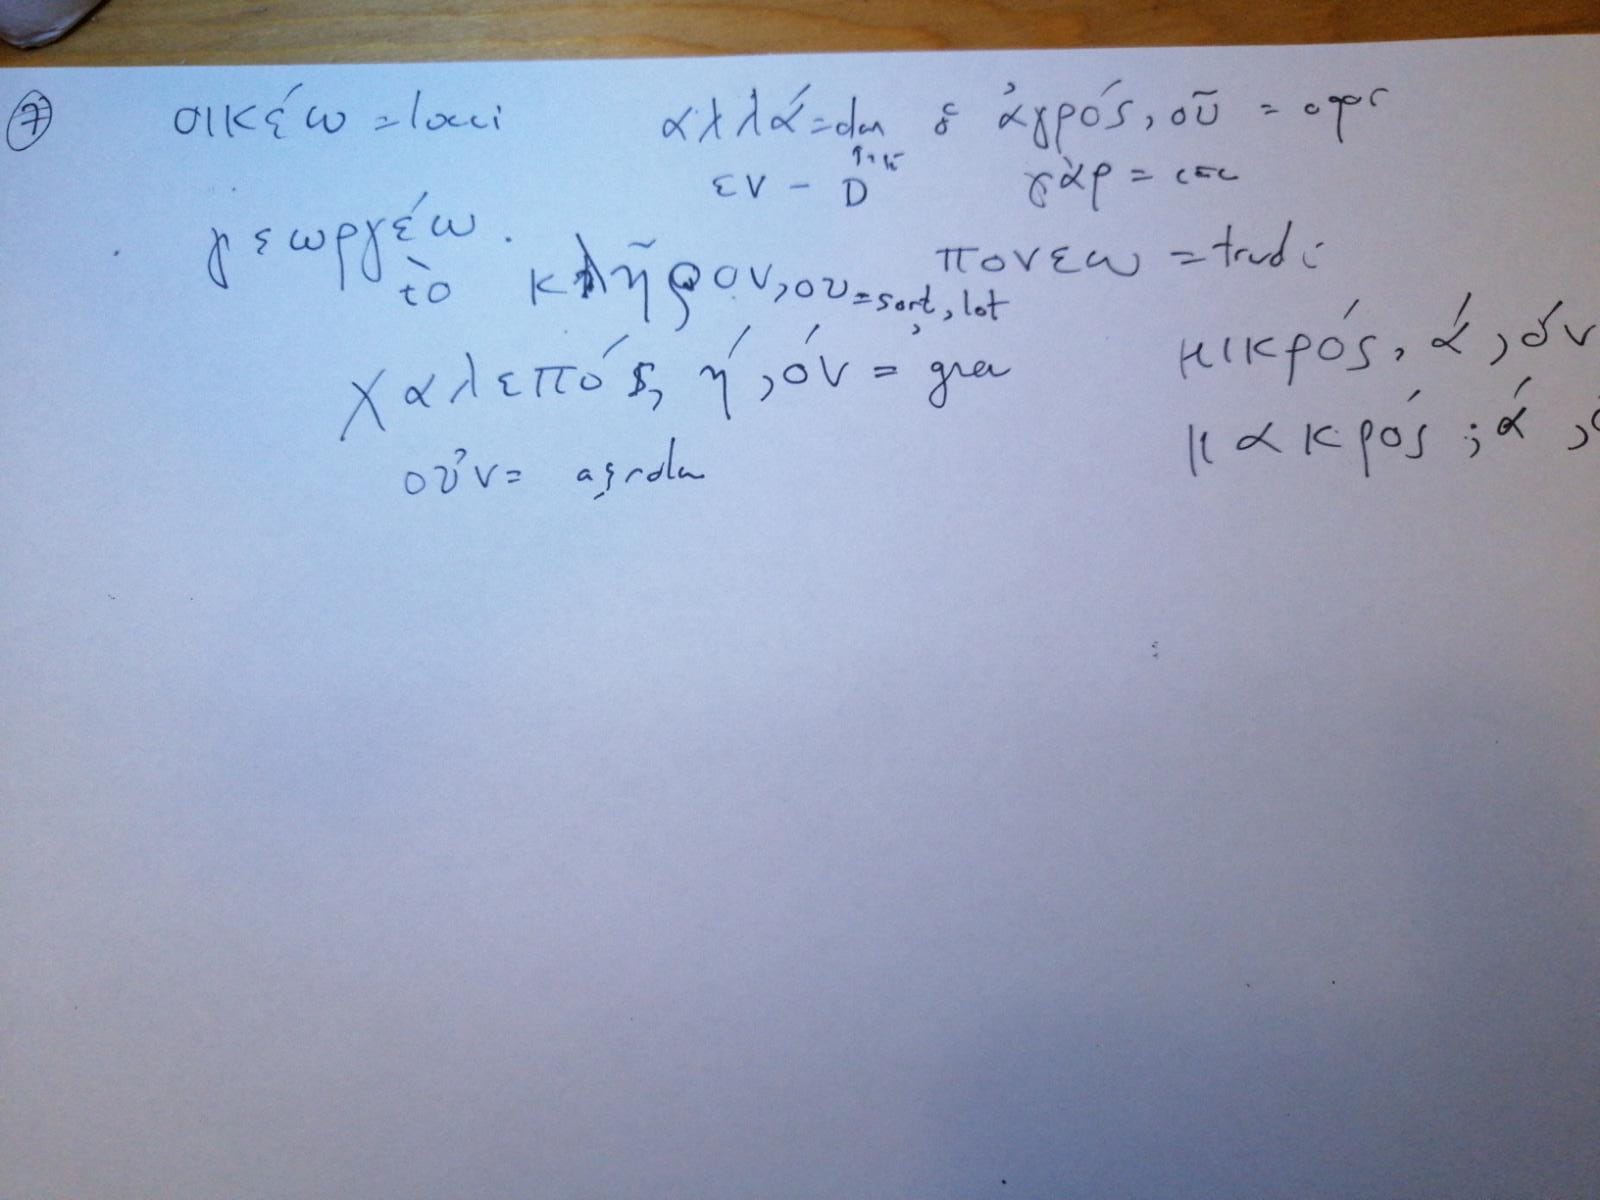 7 οικέω = locui αλλά = dar ὁ ἀγρός, οῦ = ogor
εν – D γὰρ = căc
γεωργέω.
τὸ κλῆρον, ου = sort, lot πονεω = trudi
χαλεπός, ή, όν = greu μικρός, ά, όν
μακρός, ά,
οὖν = așadar